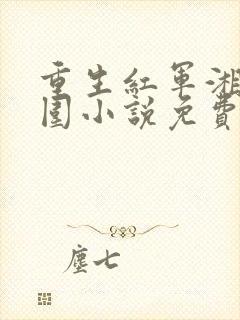 重生紅軍湘
圍小說免費
塵七